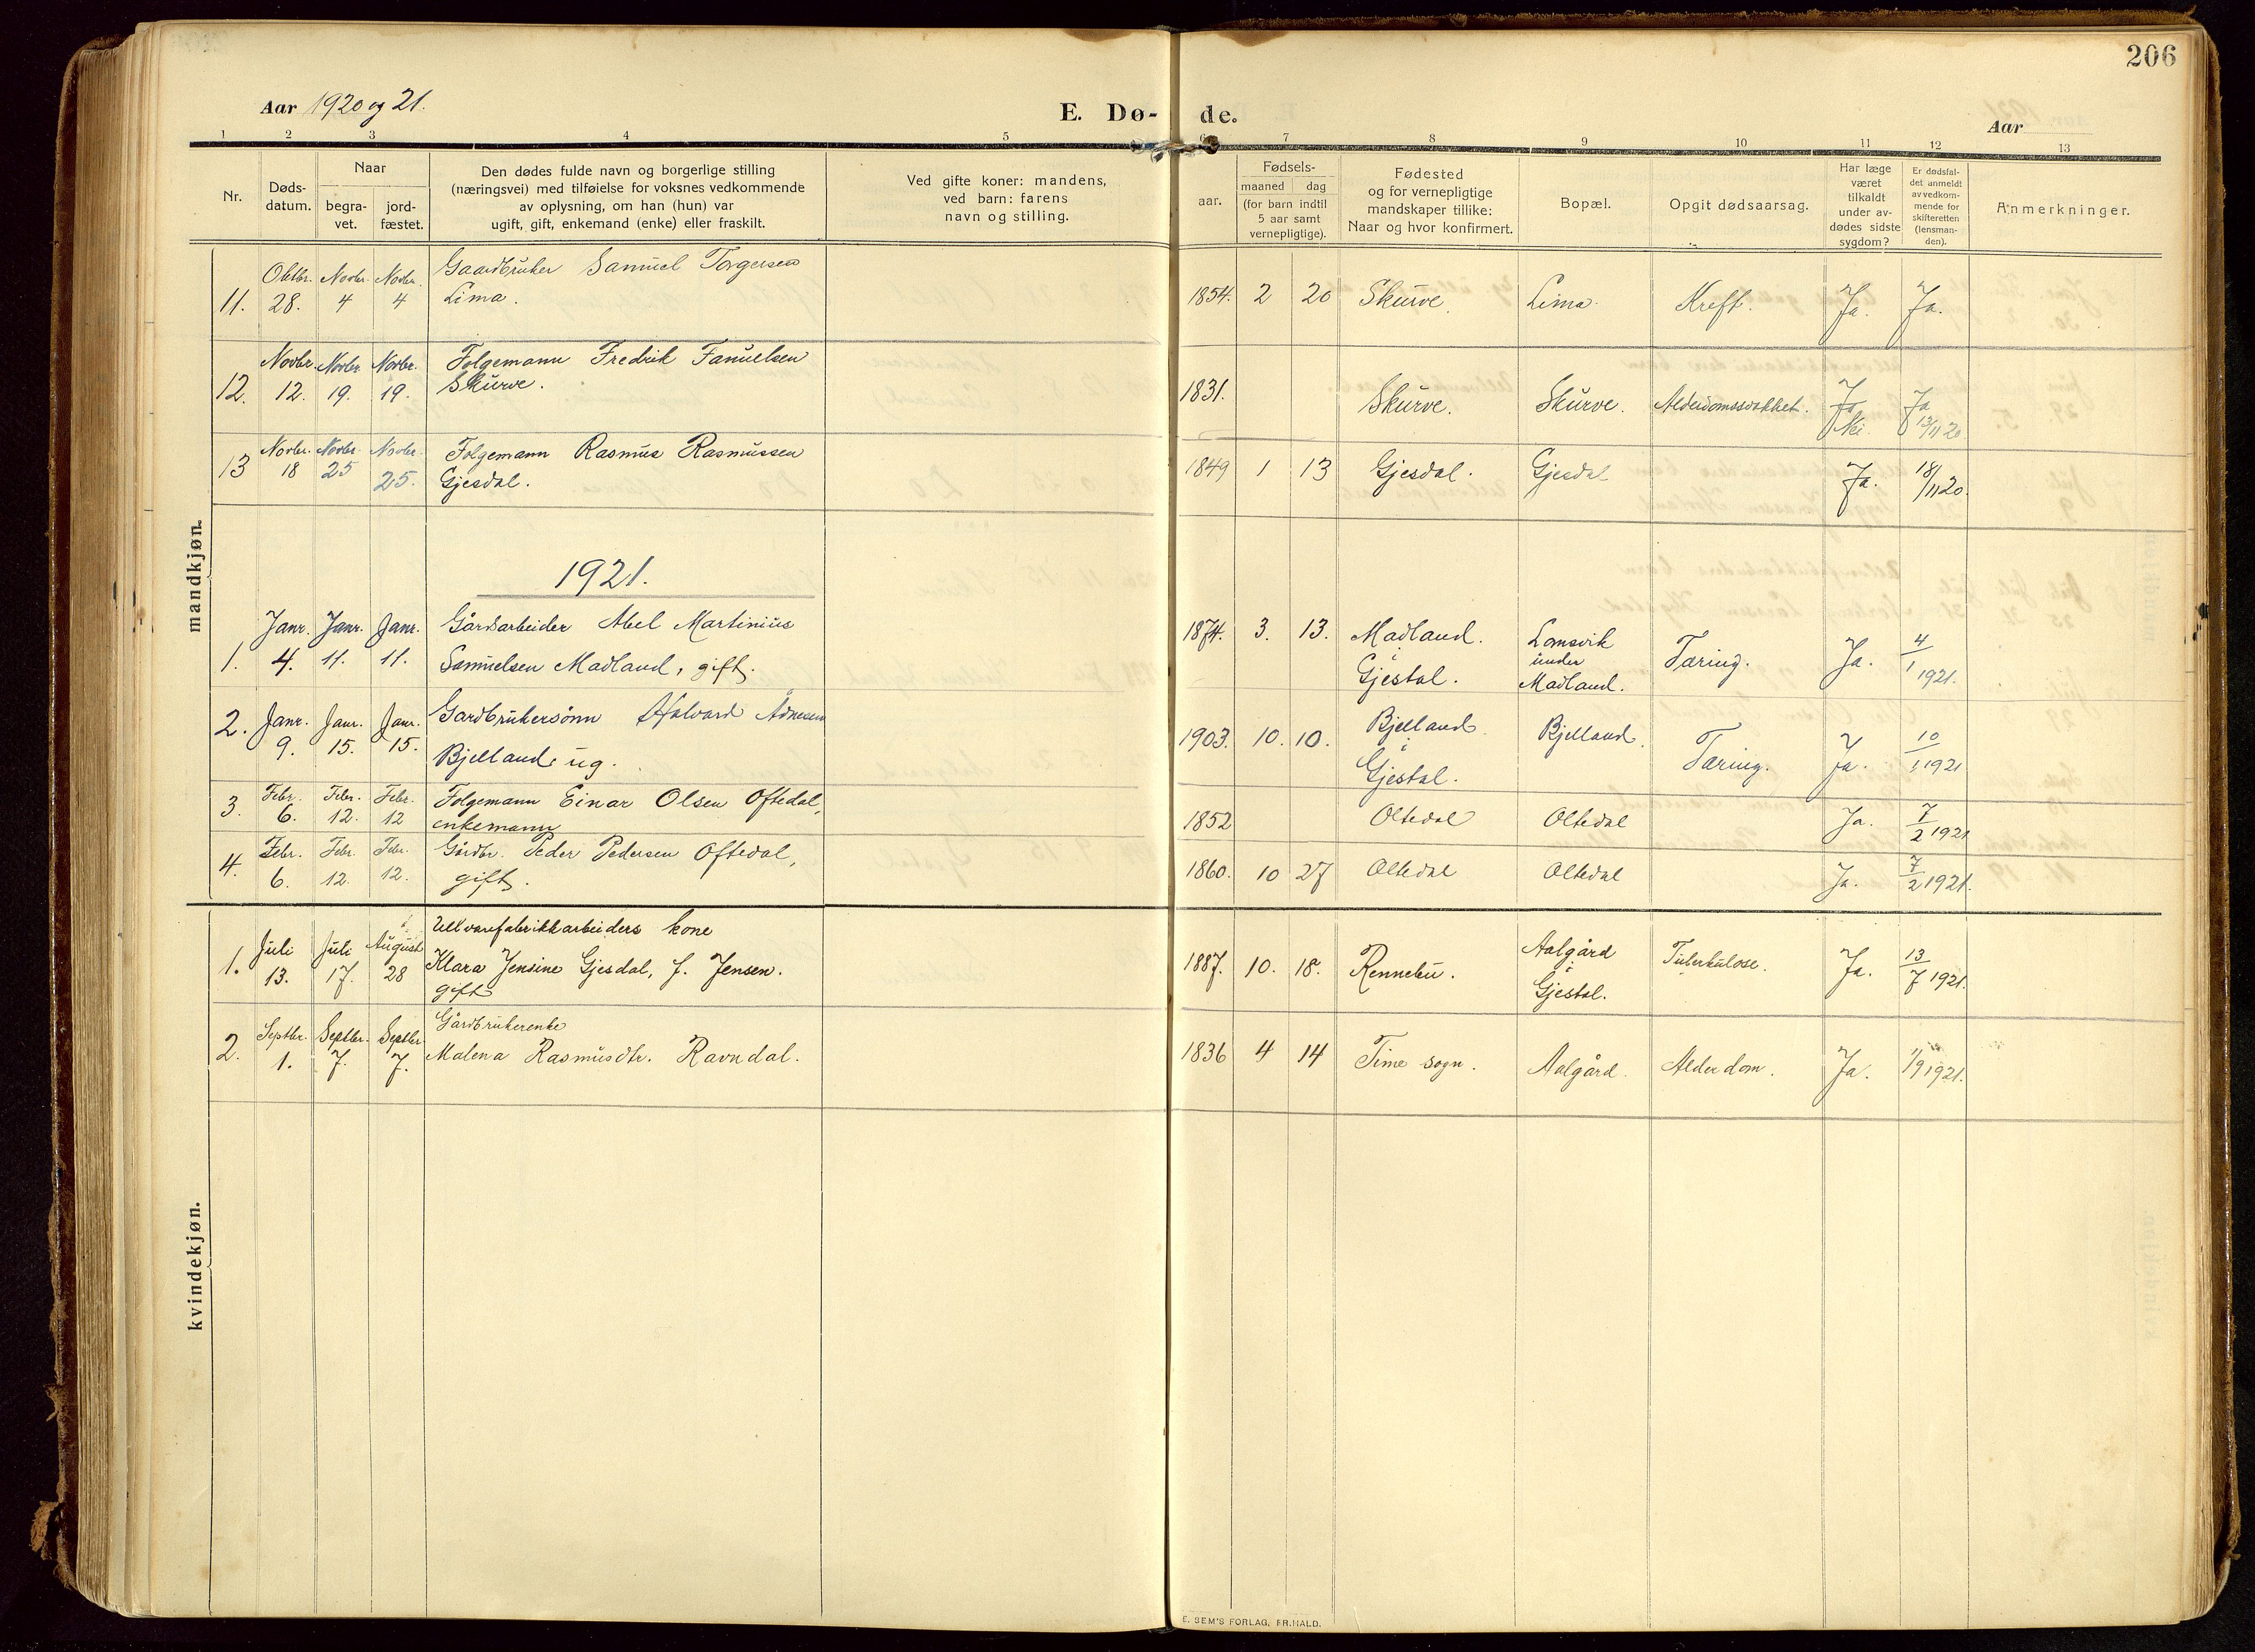 206
Aar 1920 og 21.
E. Dø- de.
Aar
1 2 3 4 5 6 7 8 9 10 11 12 13
Nr.
Døds-
datum.
Naar
begra-
vet.
jord-
fæstet.
Den dødes fulde navn og borgerlige stilling
(næringsvei) med tilføielse for voksnes vedkommende
av oplysning, om han (hun) var
ugift, gift, enkemand (enke) eller fraskilt.
Ved gifte koner: mandens,
ved barn: farens
navn og stilling.
Fødsels-
aar.
maaned dag
(for barn indtil
5 aar samt
vernepligtige).
Fødested
og for vernepligtige
mandskaper tillike:
Naar og hvor konfirmert.
Bopæl.
Opgit dødsaarsag.
Har læge
været
tilkaldt
under av-
dødes sidste
sygdom?
Er dødsfal-
det anmeldt
av vedkom-
mende for
skifteretten
(lensman-
den).
Anmerkninger.
mandkjøn.
11. Oktbr. 28. Novbr. 4 Novbr. 4 Gaardbruker Samuel Torgersen
Lima. 1854. 2 20 Skurve. Lima. Kreft. Ja. Ja.
12. Novbr. 12. Novbr. 19. Novbr. 19. Folgemann Fredrik Fanuelsen
Skurve. 1831. Skurve. Skurve. Alderdomssvakhet. Ja Nei. Ja 13/11 20
13 Novbr. 18 Novbr. 25 Novbr. 25. Folgemann Rasmus Rasmussen
Gjesdal. 1849 1 13 Gjesdal. Gjesdal Ja. 18/11 20.
1921.
1. Janr. 4. Janr. 11. Janr. 11. Gårdsarbeider Abel Martinius
Samuelsen Madland, gift. 1874. 3. 13. Madland. i Gjestal. Lomsvik under Madland. Tæring. Ja. 4/1 1921.
2. Janr. 9. Janr. 15. Janr. 15. Gardbrukersønn Halvard Ådnesen
Bjelland ug. 1903. 10. 10. Bjelland i Gjestal. Bjelland. Tæring. Ja. 10/1 1921
3. Febr. 6. Febr. 12. Febr. 12 Folgemann Einar Olsen Oftedal,
enkemann 1852 Oltedal Oltedal Ja. 7/2 1921
4. Febr. 6. Febr. 12. Febr. 12. Gårdbr. Peder Pedersen Oftedal,
gift. 1860. 10 27 Oltedal Oltedal Ja. 7/2 1921.
kvindekjøn.
1. Juli 13. Juli 17. August 28 Ullvarefabrikkarbeiders kone
Klara Jensine Gjesdal, f. Jensen.
gift 1887. 10. 18. Rennebu. Aalgård i Gjestal. Tuberkulose. Ja. 13/7 1921.
2. Septbr. 1. Septbr. 7. Septbr 7. Gårdbrukerenke
Malena Rasmusdtr. Ravndal. 1836 4 14 Time sogn. Aalgård. Alderdom. Ja. 1/9 1921.
E. SEM'S FORLAG, FR.HALD.